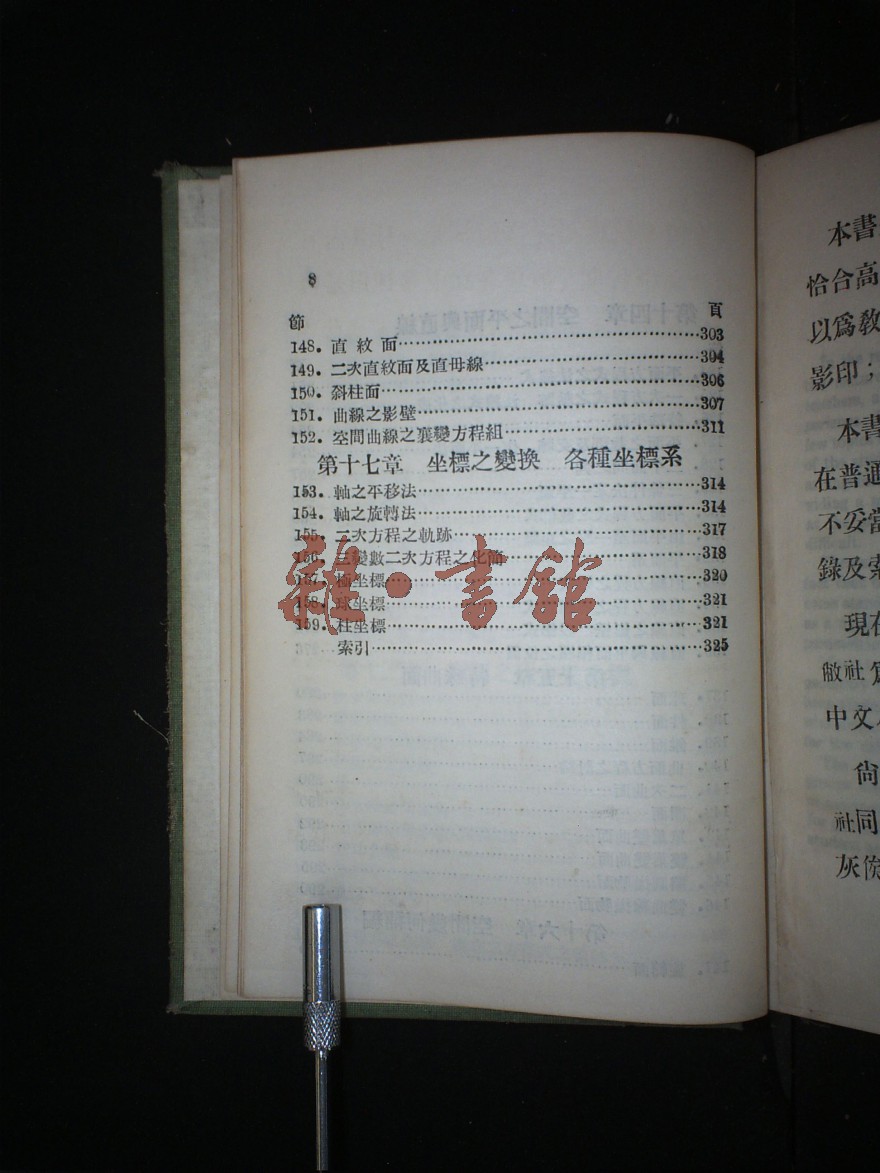 8
節 頁
148. 直紋面 303
149. 二次直紋面及直母線 304
150. 斜柱面 306
151. 曲線之影壁 307
152. 空間曲線之襄變方程組 311
第十七章 坐標之變換 各種坐標系
153. 軸之平移法 314
154. 軸之旋轉法 314
155. 二次方程之軌跡 317
156. 三變數二次方程之化簡 318
157. 極坐標 320
158. 球坐標 321
159. 柱坐標 321
索引 325
雜·書館
本書
恰合高
以爲教
影印；
本書
在普通
不妥當
錄及索
現在
敝社爲
中文
尙
社同
灰俟